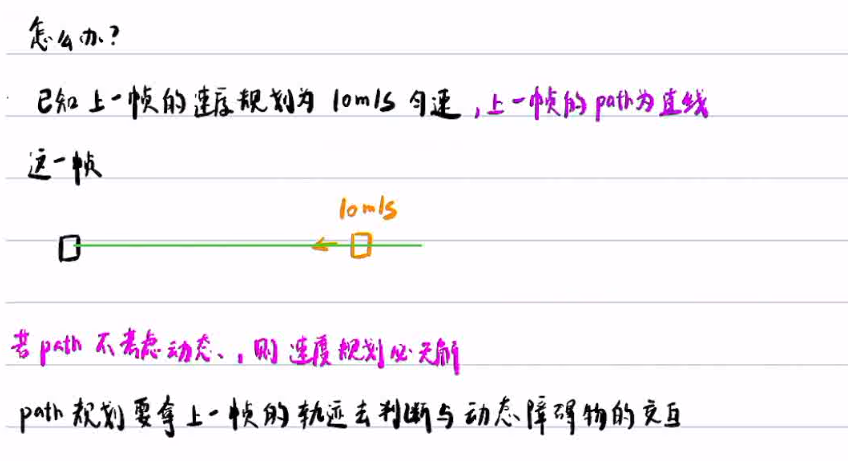 怎么办?
已知上一帧的速度规划为 10m/s 匀速,上一帧的path为直线
这一帧
10m/s
若path不考虑动态、,则速度规划必无解
path规划要拿上一帧的轨迹去判断与动态障碍物的交互